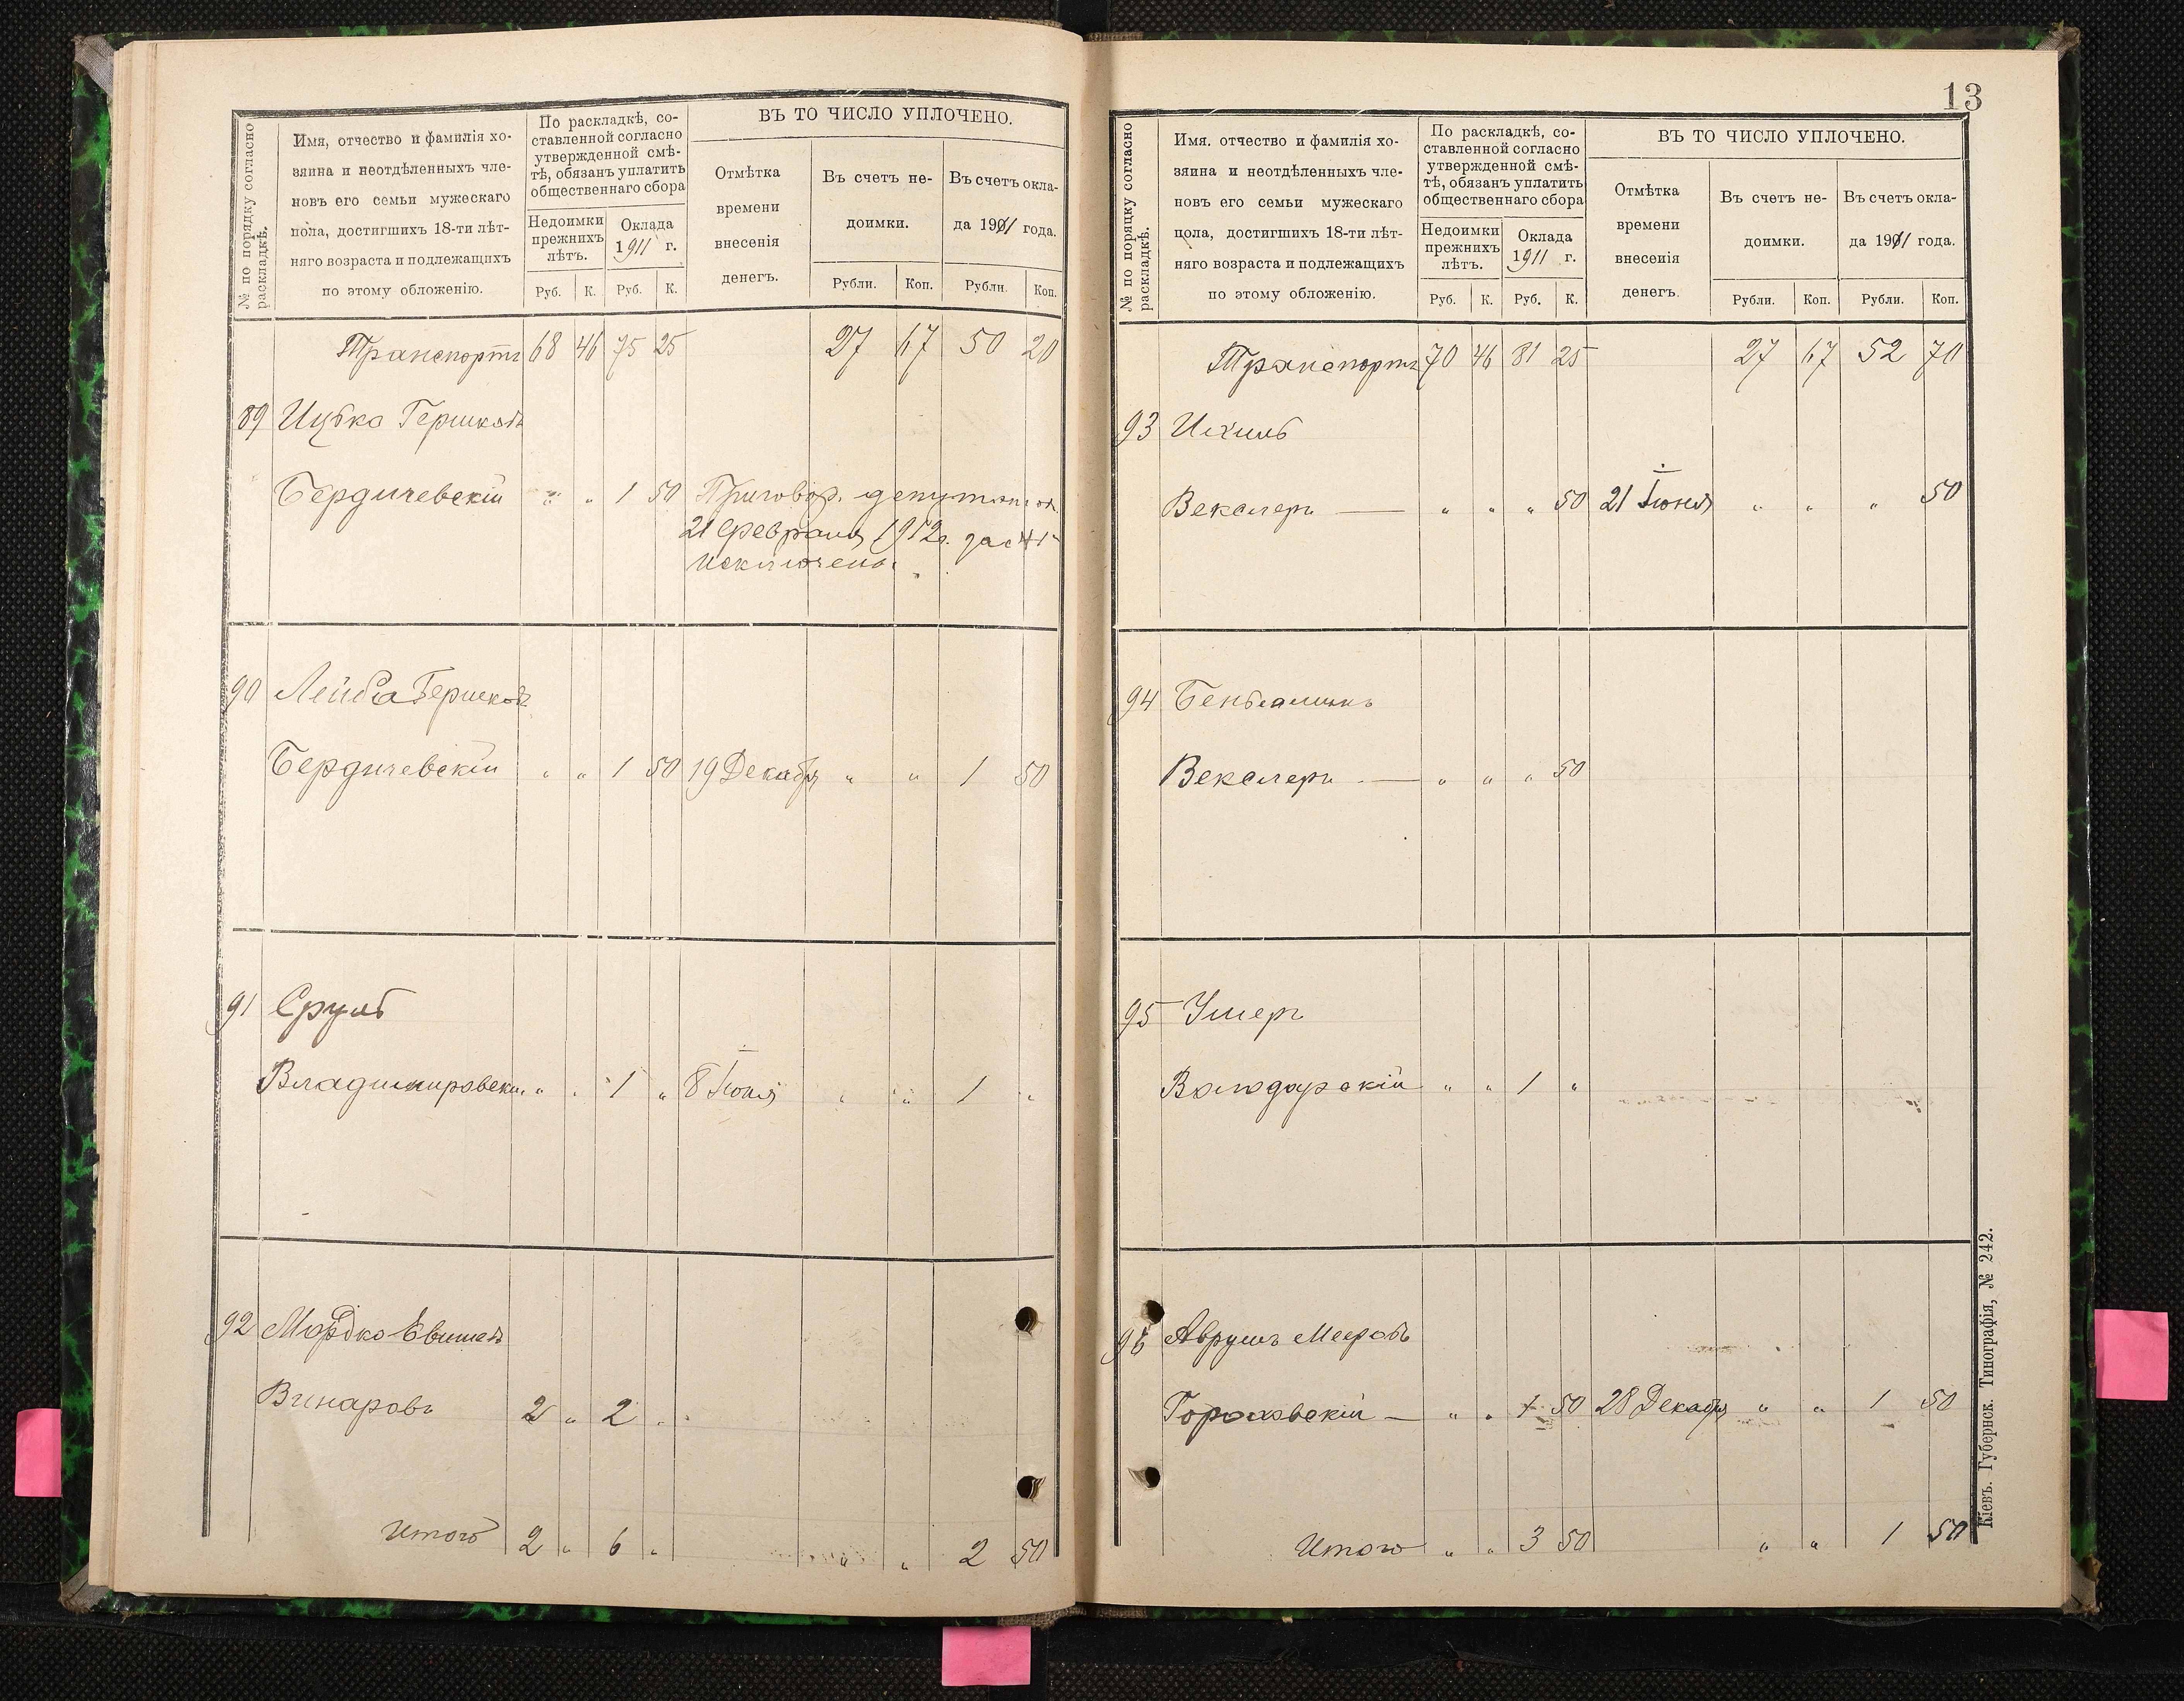 № по порядку согласно раскладкѣ.
Имя, отчество и фамилія хо-
зяина и неотдѣленныхъ чле-
новъ его семьи мужескаго
пола, достигшихъ 18-ти лѣт-
няго возраста и подлежащихъ
по этому обложенію.
По раскладкѣ, со-
ставленной согласно
утвержденной смѣ-
тѣ, обязанъ уплатить
общественнаго сбора
Недоимки прежнихъ лѣтъ.
Оклада 1911 г.
Руб. К. Руб. К.
ВЪ ТО ЧИСЛО УПЛОЧЕНО.
Отмѣтка
времени
внесенія
денегъ.
Въ счетъ не-
доимки.
Въ счетъ окла-
да 1911 года.
Рубли. Коп. Рубли. Коп.
Транспортъ 68 46 75 25 27 67 50 20
89 Ицько Гершковъ
Бердичевскій " " 1 50 Приговор. депутатовъ
21 февраля 1912г. за №
исключенъ.
90 Лейба Гершковъ
Бердичевскій " " 1 50 19 Декабря " " 1 50
91 Сруль
Владимировскій " " 1 " 8 Іюня " " 1 "
92 Мордко
Винаровъ 2 " 2 "
Итого 2 " 6 " " " 2 50
13
№ по порядку согласно раскладкѣ.
Имя. отчество и фамилія хо-
зяина и неотдѣленныхъ чле-
новъ его семьи мужескаго
пола, достигшихъ 18-ти лѣт-
няго возраста и подлежащихъ
по этому обложенію.
По раскладкѣ, со-
ставленной согласно
утвержденной смѣ-
тѣ, обязанъ уплатить
общественнаго сбора
Недоимки прежнихъ лѣтъ.
Оклада 1911 г.
Руб. К. Руб. К.
ВЪ ТО ЧИСЛО УПЛОЧЕНО.
Отмѣтка
времени
внесенія
денегъ.
Въ счетъ не-
доимки.
Въ счетъ окла-
да 1911 года.
Рубли. Коп. Рубли. Коп.
Транспортъ 70 46 81 25 27 67 52 70
93 Ихиль
Векслеръ — " " " 50 21 Іюня " " " 50
94 Беньяминъ
Векслеръ — " " " 50
95 Ушеръ
Володарскій " " 1 "
96 Аврумъ Мееровъ
— " " 1 50 28 Декабря " " 1 50
Итого " " 3 50 " " 1 50
Кіевъ. Губернск. Типографія, № 242.